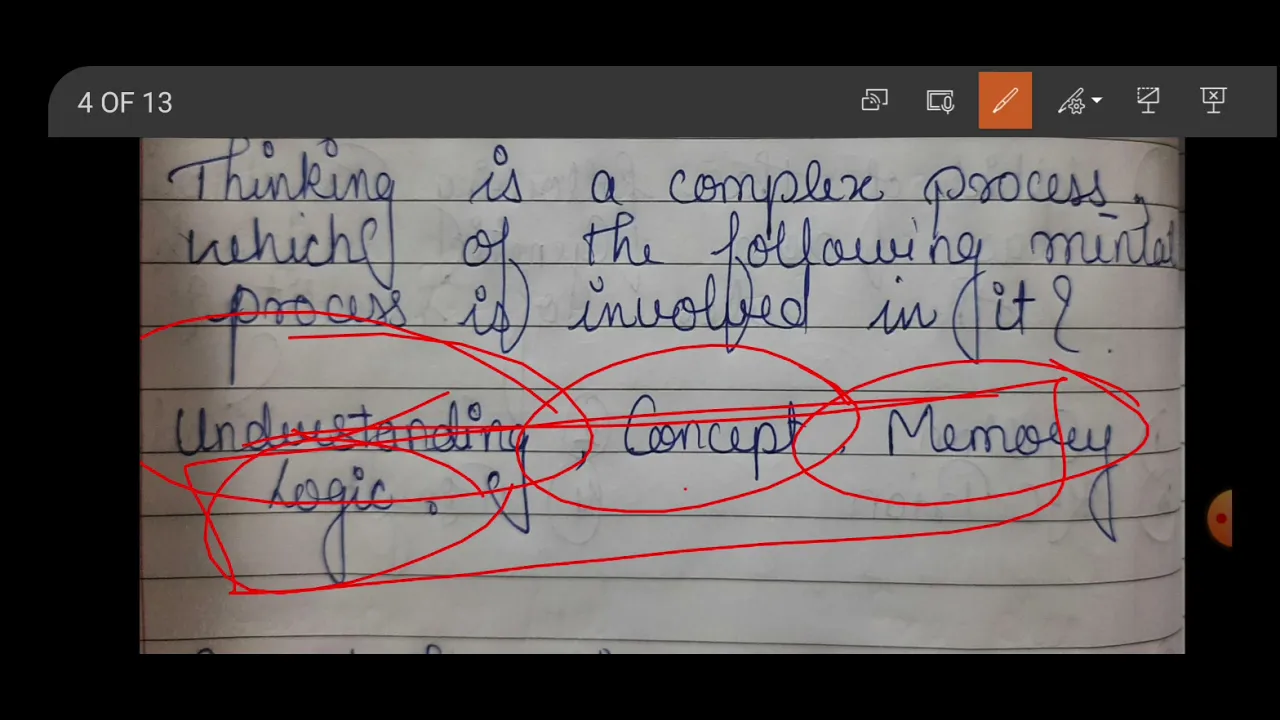 4 OF 13
Thinking is a complex process,
which of the following mental
process is involved in it?
Understanding, Concept, Memory
Logic.